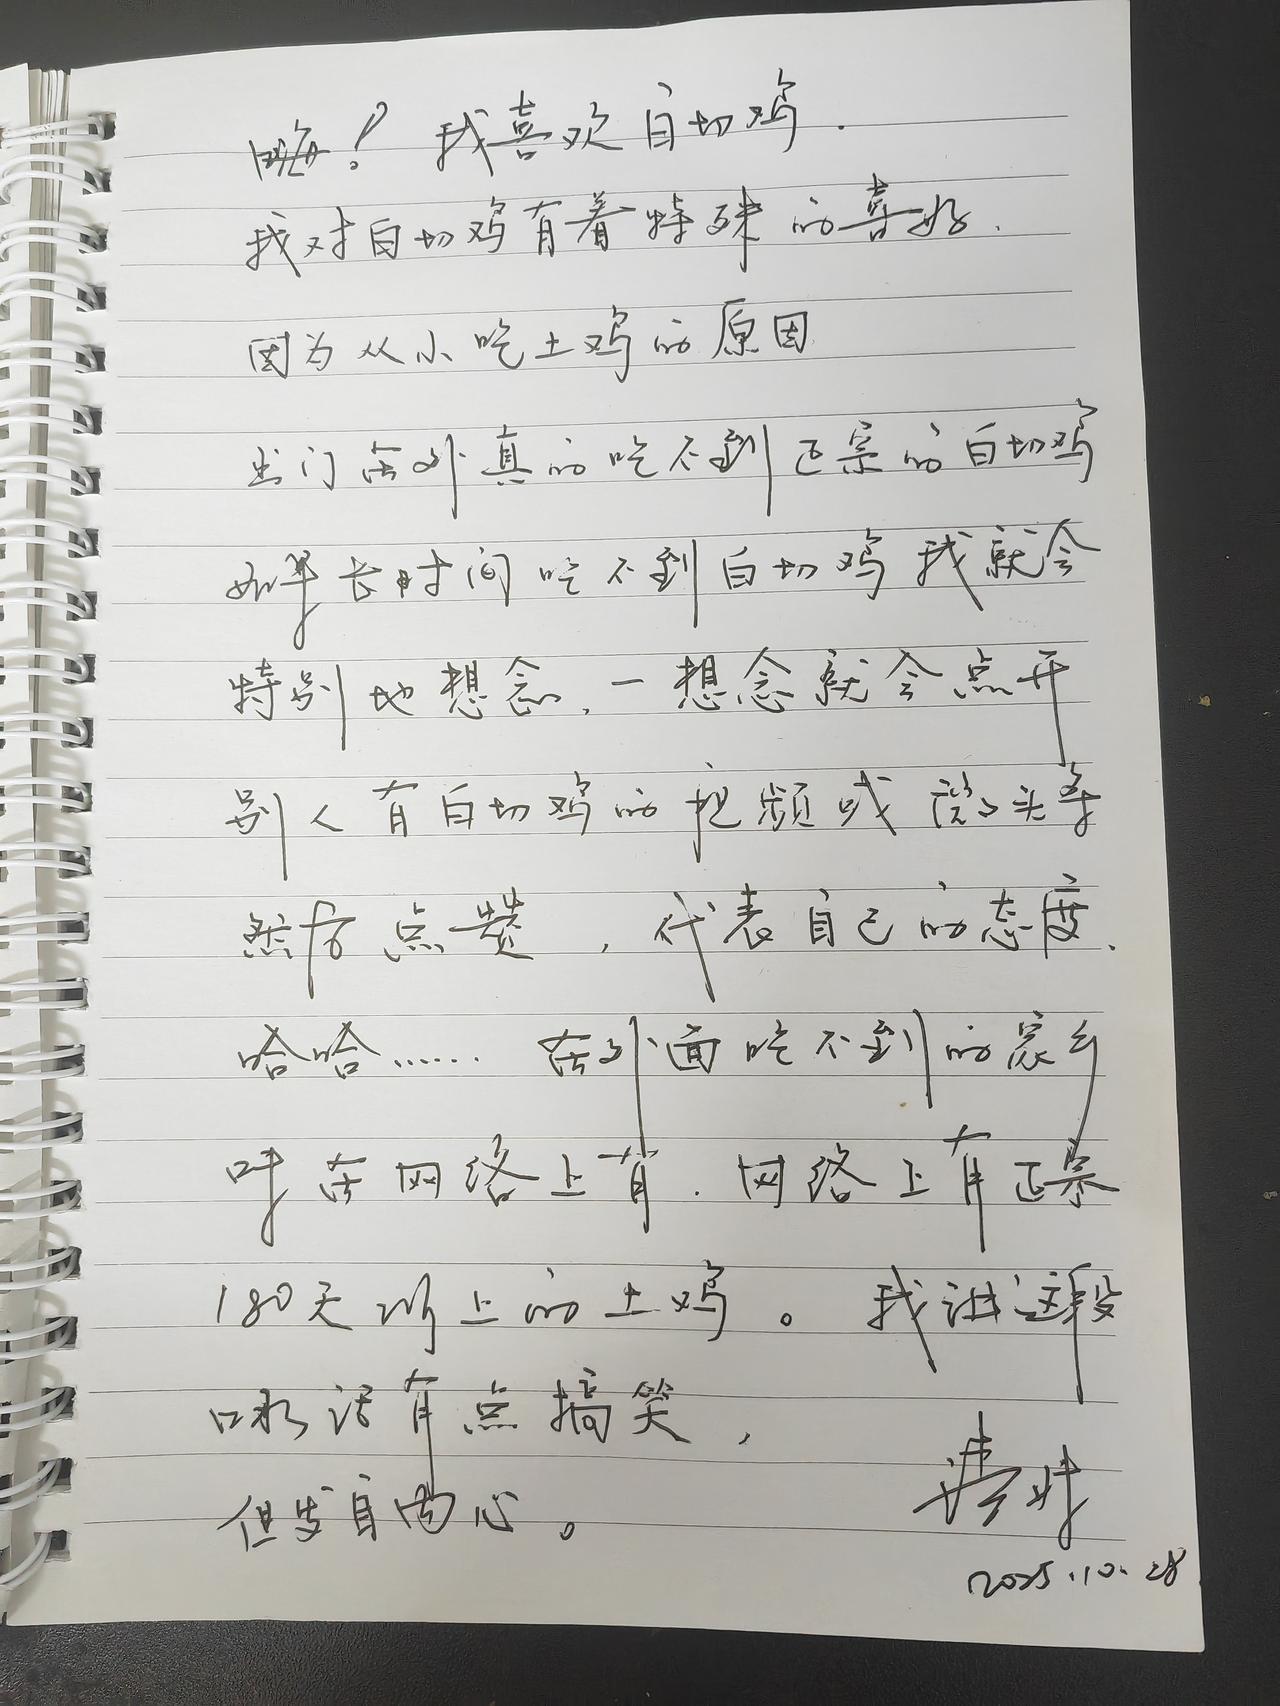 嗨！我喜欢白切鸡.
我对白切鸡有着特殊的喜好.
因为从小吃土鸡的原因
出门在外真的吃不到正宗的白切鸡
如果长时间吃不到白切鸡我就会
特别地想念，一想念就会点开
别人有白切鸡的视频或微头条
然后点赞，代表自己的态度.
哈哈……在外面吃不到的家乡
味在网络上有.网络上有正宗
180天以上的土鸡。我讲这段
口水话有点搞笑，
但发自内心。
2025.10.28